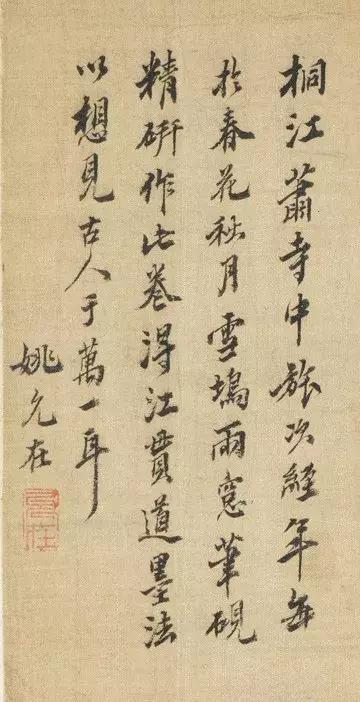 桐江蕭寺中旅次經年每
於春花秋月雪塢雨窓筆硯
精研作此卷得江貫道墨法
以想見古人于萬一耳
姚允在